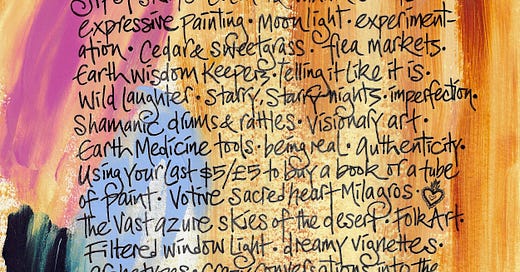 expressive painting • Moonlight • experiment-
ation • Cedar & sweetgrass • flea markets •
Earth Wisdom Keepers • Telling it like it is •
Wild laughter • Starry, Starry nights • imperfection •
Shamanic drums & rattles • Visionary art •
Earth Medicine tools • being real • Authenticity •
Using your last $5/£5 to buy a book or a tube
of paint • Votive sacred heart Milagros •
The Vast azure skies of the desert • Folk Art •
Filtered window Light • dreamy vignettes •
conversations into the